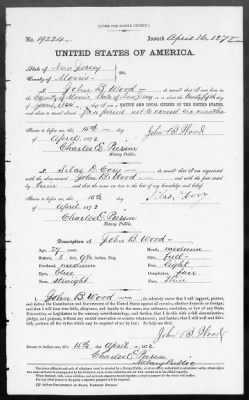 [FORM FOR NATIVE CITIZEN.]
No. 19224. Issued April 16, 1872
UNITED STATES OF AMERICA.
State of New Jersey
County of Morris ss.
I, John B. Wood, do swear that I was born in
the County of Morris, State of New Jersey on the
day of June, 1844; that I am a NATIVE AND LOYAL CITIZEN OF THE UNITED STATES,
and about to travel abroad
for a period not to exceed six months
Sworn to before me, this 15th
day of April, 1872
John B. Wood
Charles E. Pierson
Notary Public.
I, Silas D. Cory, do swear that I am acquainted
with the above-named John B. Wood, and with the facts stated by
him, and that the same are true to the best of my knowledge and belief.
Sworn to before me, this 15th
day of April 1872
Silas D. Cory
Charles E. Pierson
Notary Public.
Description of John B. Wood
Age: 27 years. Mouth: medium
Stature: 5 feet 9¾ inches, Eng. Chin: full
Forehead: medium Hair: light
Eyes: blue Complexion: fair
Nose: straight Face: thin
I, John B. Wood, do solemnly swear that I will support, protect,
and defend the Constitution and Government of the United States against all enemies, whether domestic or foreign;
and that I will bear true faith, allegiance, and loyalty to the same, any ordinance, resolution, or law of any State,
Convention, or Legislature to the contrary notwithstanding; and further, that I do this with a full determination,
pledge, and purpose, without any mental reservation or evasion whatsoever; and further, that I will well and faith-
fully perform all the duties which may be required of me by law: So help me God.
John B. Wood
Sworn to before me, this 15th day of April 1872
Charles E. Pierson
Notary Public